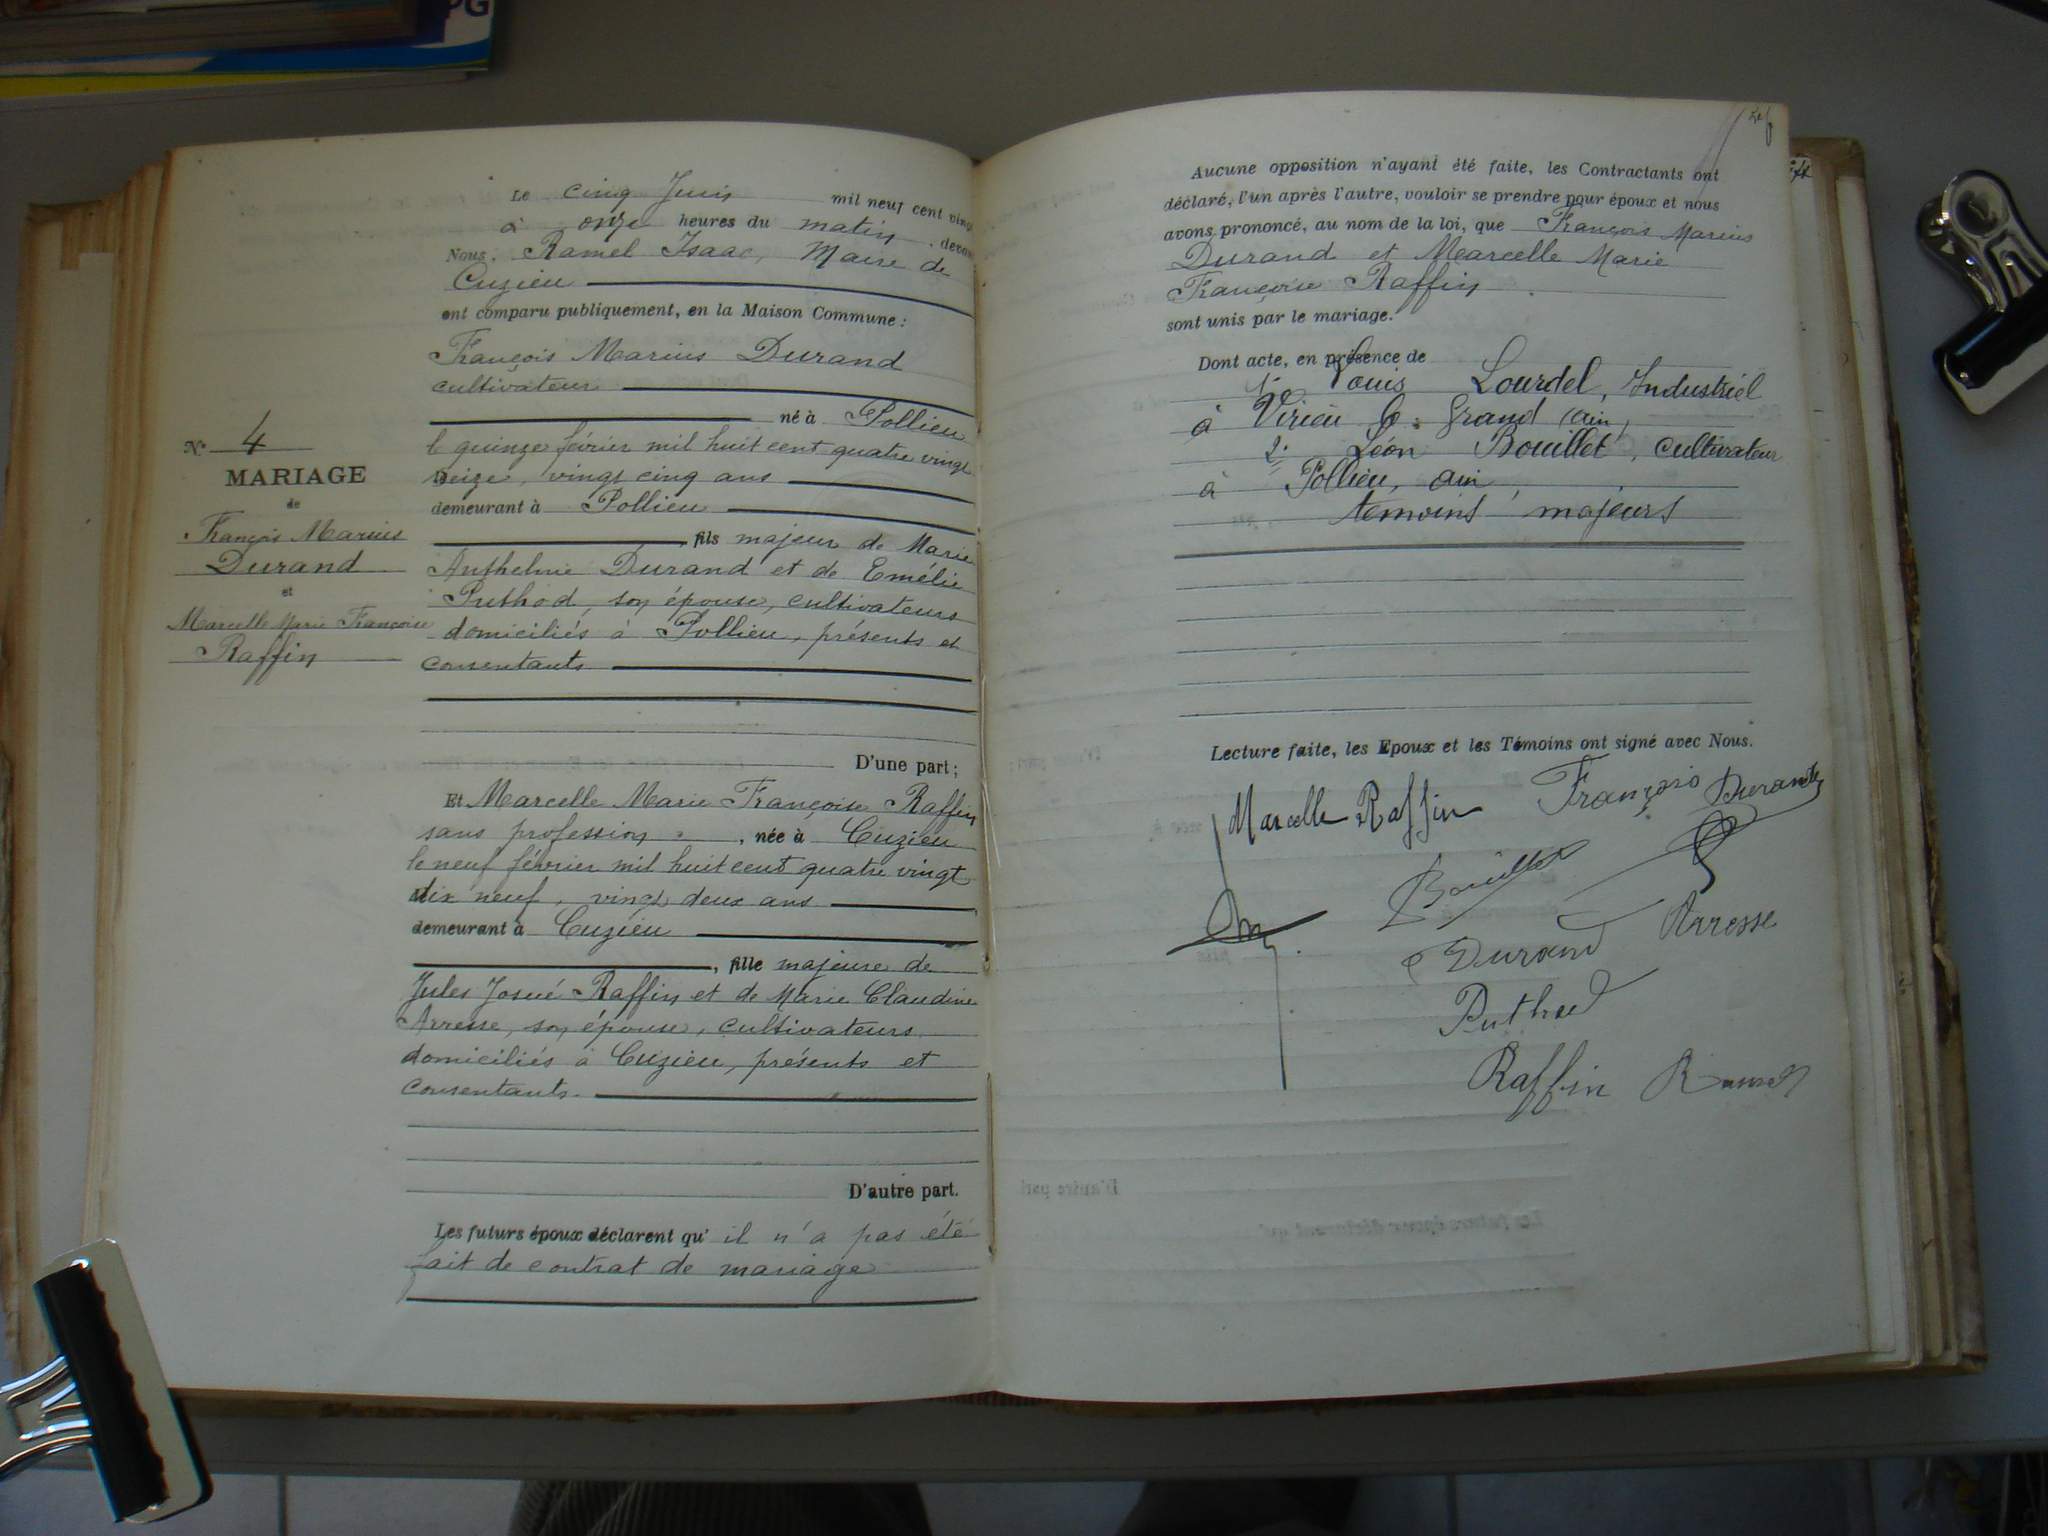 PG
N° 4
MARIAGE
de
François Marius
Durand
et
Marcelle Marie Françoise
Raffin
Le cinq Juin mil neuf cent vingt
à onze heures du matin, devant
Nous, Ramel Isaac, Maire de
Cuzieu
ont comparu publiquement, en la Maison Commune :
François Marius Durand
cultivateur
né à Pollieu
le quinze février mil huit cent quatre vingt
seize, vingt cinq ans
demeurant à Pollieu
fils majeur de Marie
Anthelme Durand et de Emélie
Puthod, son épouse, cultivateurs
domiciliés à Pollieu, présents et
consentants
D'une part ;
Et Marcelle Marie Françoise Raffin
sans profession, née à Cuzieu
le neuf février mil huit cent quatre vingt
dix neuf, vingt deux ans
demeurant à Cuzieu
, fille majeure de
Jules Josué Raffin et de Marie Claudine
Arresse, son épouse, cultivateurs
domiciliés à Cuzieu, présents et
consentants.
D'autre part.
Les futurs époux déclarent qu' il n'a pas été
fait de contrat de mariage
Aucune opposition n'ayant été faite, les Contractants ont
déclaré, l'un après l'autre, vouloir se prendre pour époux et nous
avons prononcé, au nom de la loi, que François Marius
Durand et Marcelle Marie
Françoise Raffin
sont unis par le mariage.
Dont acte, en présence de
1° Louis Lourdel, Industriel
à Virieu le Grand (ain)
2° Léon Bouillet, cultivateur
à Pollieu, ain,
témoins majeurs
Lecture faite, les Epoux et les Témoins ont signé avec Nous.
Marcelle Raffin François Durand
Bouillet
Durand Arresse
Puthod
Raffin Ramel